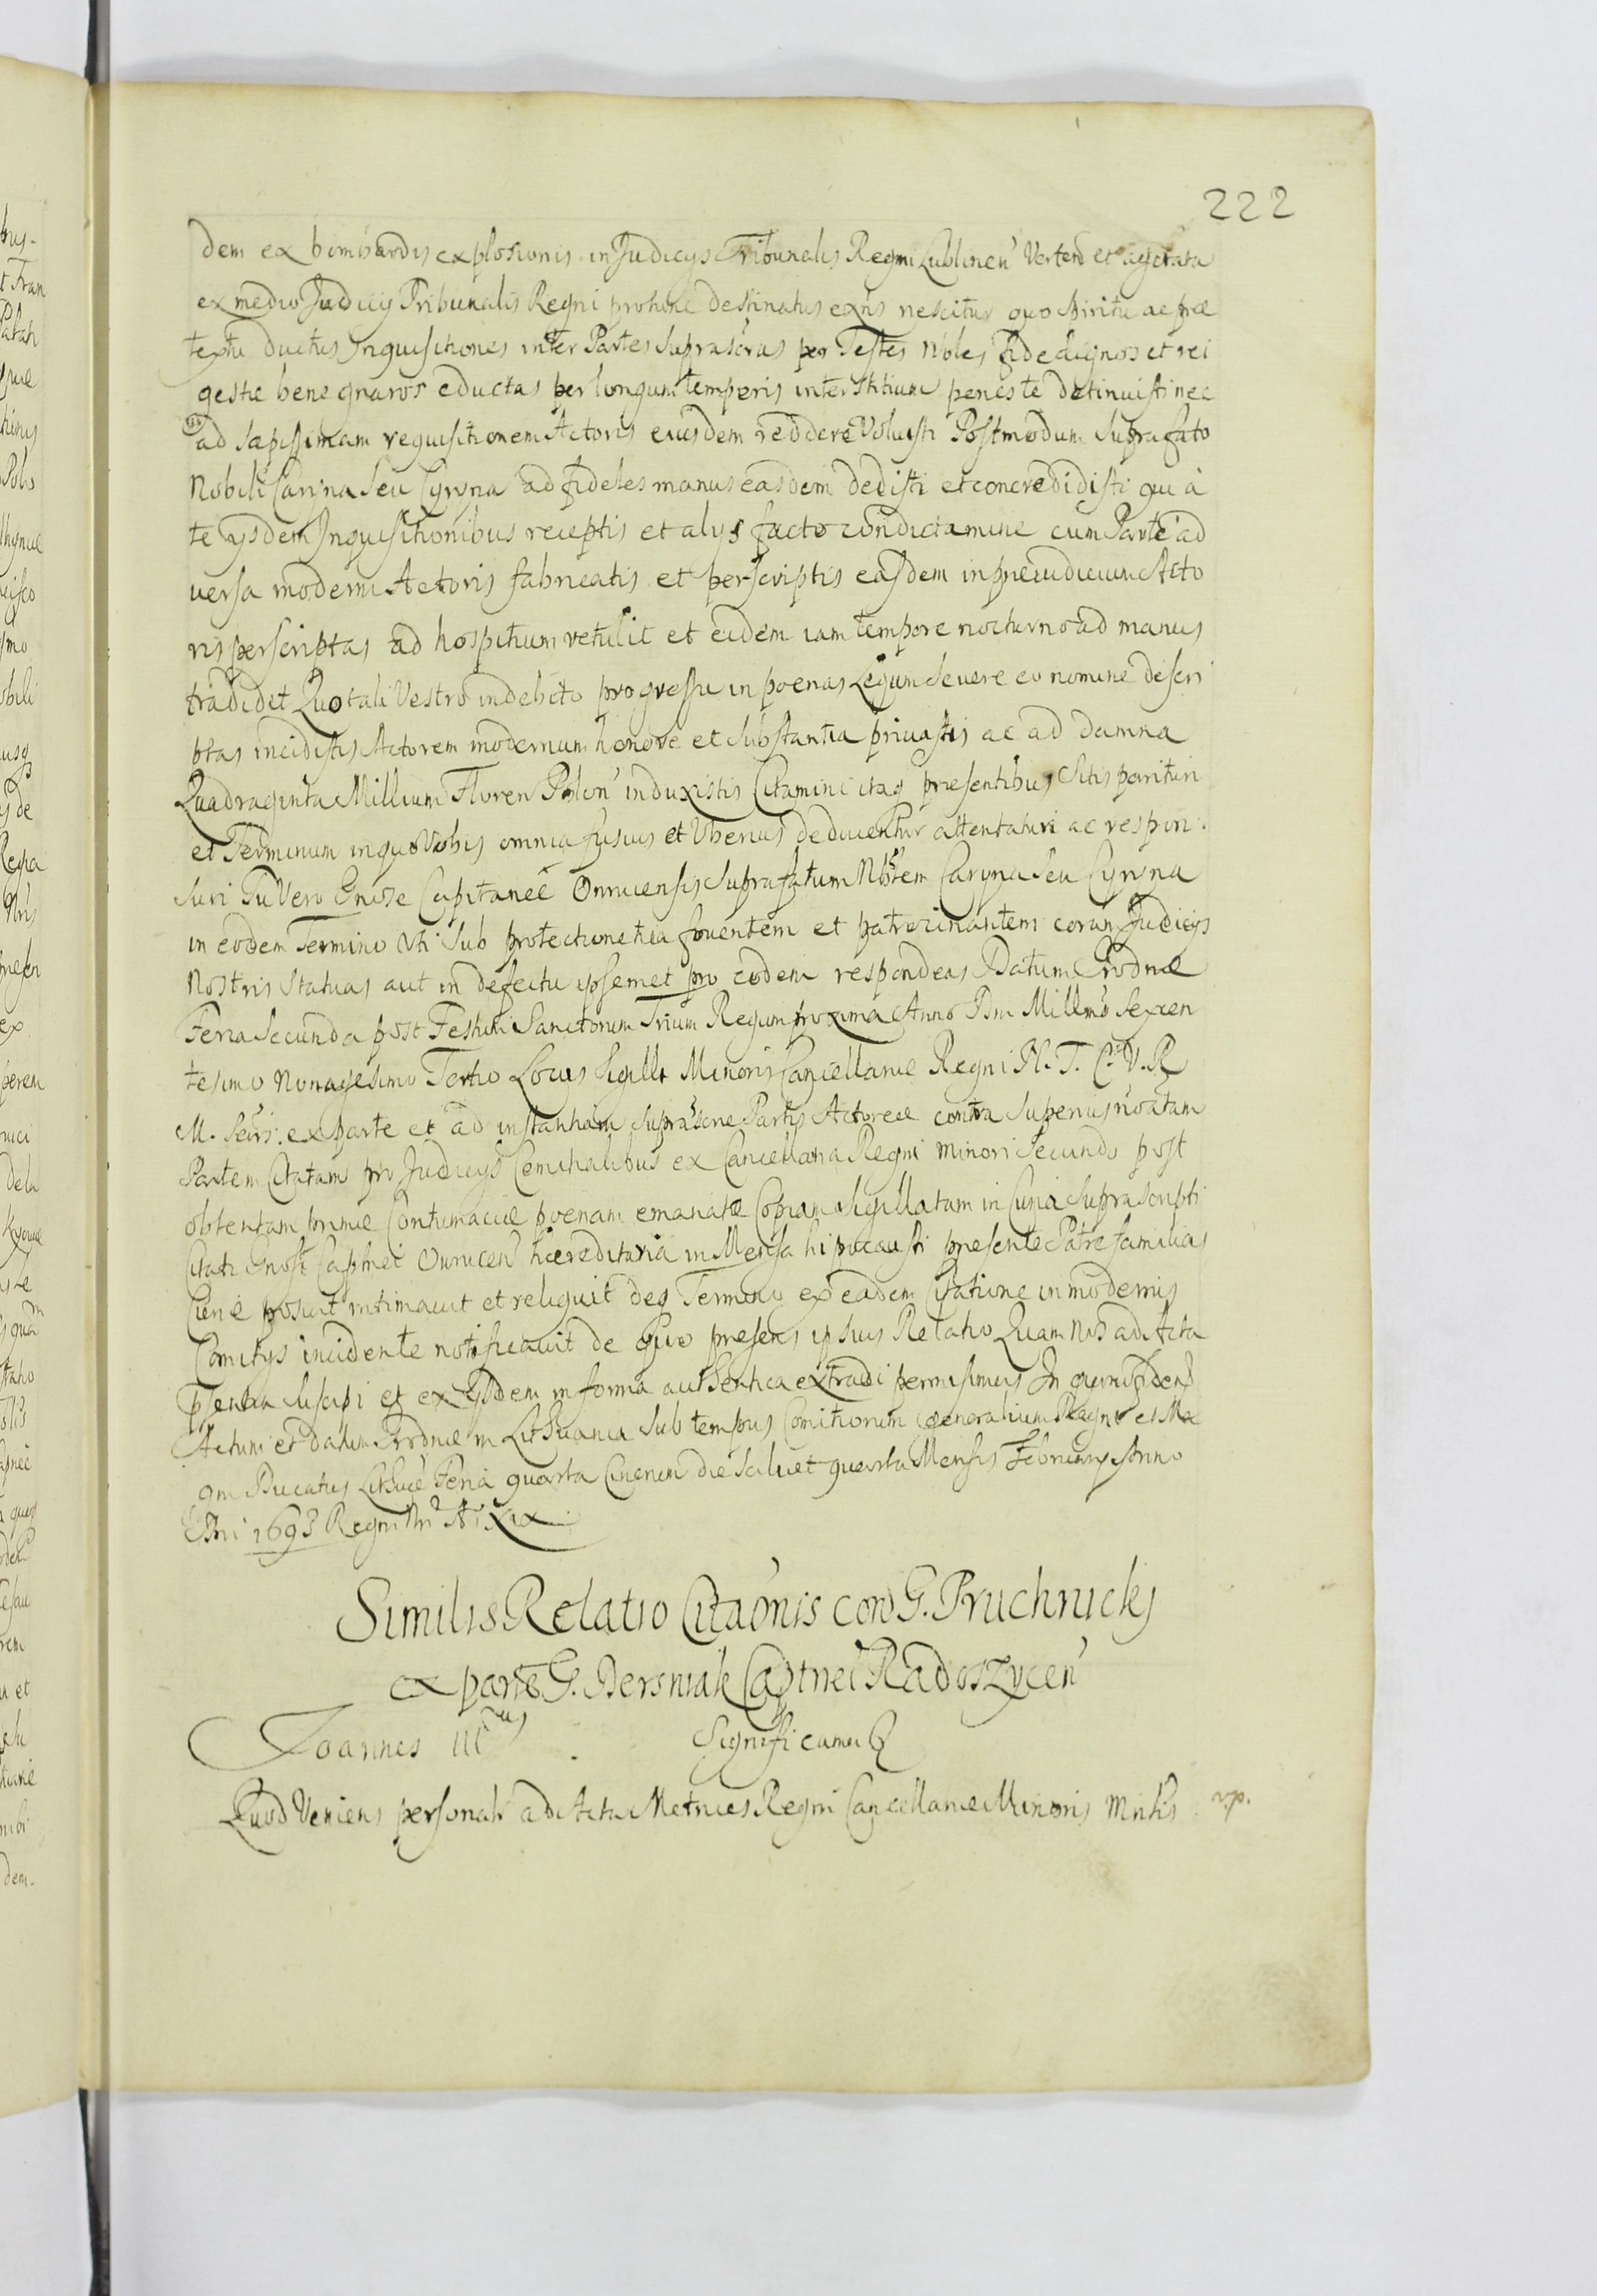 222
dem ex bombardis explosionis in Judicys Tribunalis Regni Lublinen Verten et agitata
ex medio Judicij Tribunalis Regni pro hunc destinatus exns nescitur quo spiritu ac præ
textu ductus Inquisitiones inter Partes Suprascras per Testes Nobles fide dignos et rei
gestæ bene gnaros eductas per longum temporis interstitium penes te detinuisti nec
ad sæpissimam requisitionem Actoris eiusdem reddere Voluisti Postmodum Suprafato
Nobili Caryna Seu Cyryna ad fideles manus easdem dedisti et concredidisti qui à
te ysdem Inquisitionibus receptis et alys facto condictamine cum Parte ad
uersa moderni Actoris fabricatis et perscriptis easdem in præiudicium Acto
ris perscriptas ad hospitium retulit et eidem iam tempore nocturno ad manus
tradidit Quo tali Vestro indebito progressu in poenas Legum Seuere eo nomine descri
ptas incidistis Actorem modernum honore et substantia priuastis ac ad damna
Quadraginta Millium Floren Polon induxistis Citamini itaq presentibus Sitis parituri
et Terminum in quo Vobis omnia fusius et Vberius deducentur attentaturi ac respon
suri Tu Vero Gnose Capitanee Owrucensis Suprafatum Nobtem Caryna Seu Cyryna
in eodem Termino Vti Sub protectione tua fouentem et patrocinantem coram Judicijs
Nostris Statuas aut in defectu ipsemet pro eodem respondeas Datum Grodnæ
Feria Secunda post Festum Sanctorum Trium Regum proxima Anno Dni Millmo Sexcen
tesimo Nonagesimo Tertio Locus Sigilli Minoris Cancellariæ Regni
M. Scris. ex parte et ad instantiam suprascræ Partis Actoreæ contra Superius noatam
Partem Citatam pro Judicys Comitialibus ex Cancellaria Regni Minori Secundo post
obtentam primæ Contumaciæ poenam emanatæ Copiam Sigillatam in Curia Suprascripti
Citati Gnosi Capitnei Owrucen hæreditaria in Mensa hipocausti presente Patre familias
Curiæ posuit intimauit et reliquit deq Termino ex eadem Citatione in modernis
Comitys incidente notificauit de quo presens ipsius Relatio Quam Nos ad Acta
psentia suscipi et ex Ijsdem in forma authentica extradi permisimus In quorum fidem
Actum et datum Grodnæ in Lithuania Sub tempus Comitiorum generalium Regni et Ma
gni Ducatus Lithuæ Feria quarta Cinerum die Scilicet quarta Mensis February Anno
Dni 1693 Regni Nri Ao XIX
Similis Relatio Citaonis con G. Pruchnicki
ex parte G. Dersniak Captnei Radoszycen
Joannes IIIus Significamus
Quod Veniens personalr ad Acta Metrices Regni Cancellariæ Minoris Mntis